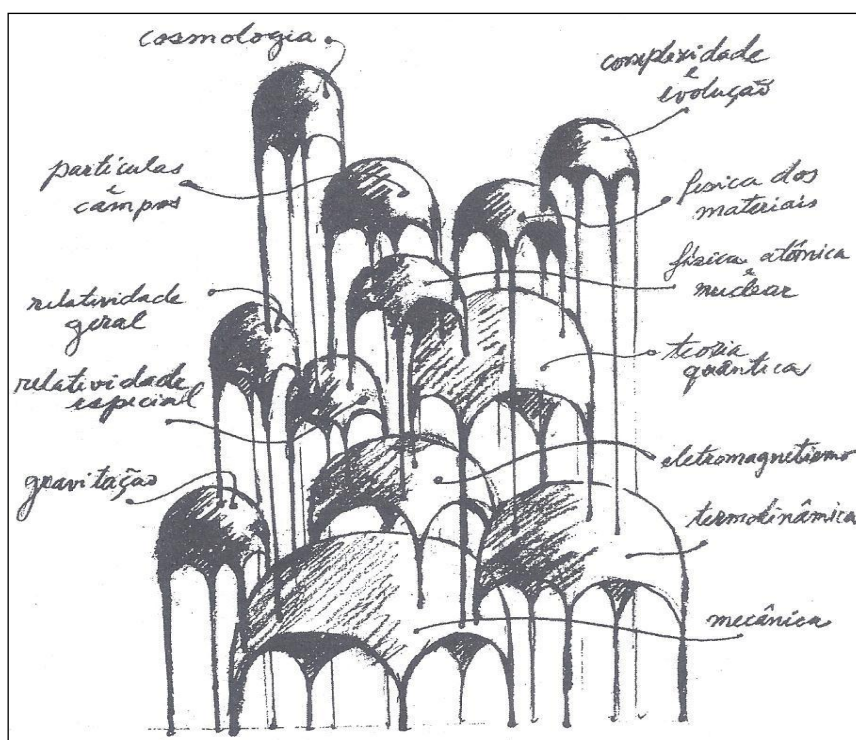 cosmologia
complexidade
e
evolução
partículas
e
campos
física dos
materiais
física atômica
e
nuclear
relatividade
geral
teoria
quântica
relatividade
especial
eletromagnetismo
gravitação
termodinâmica
mecânica